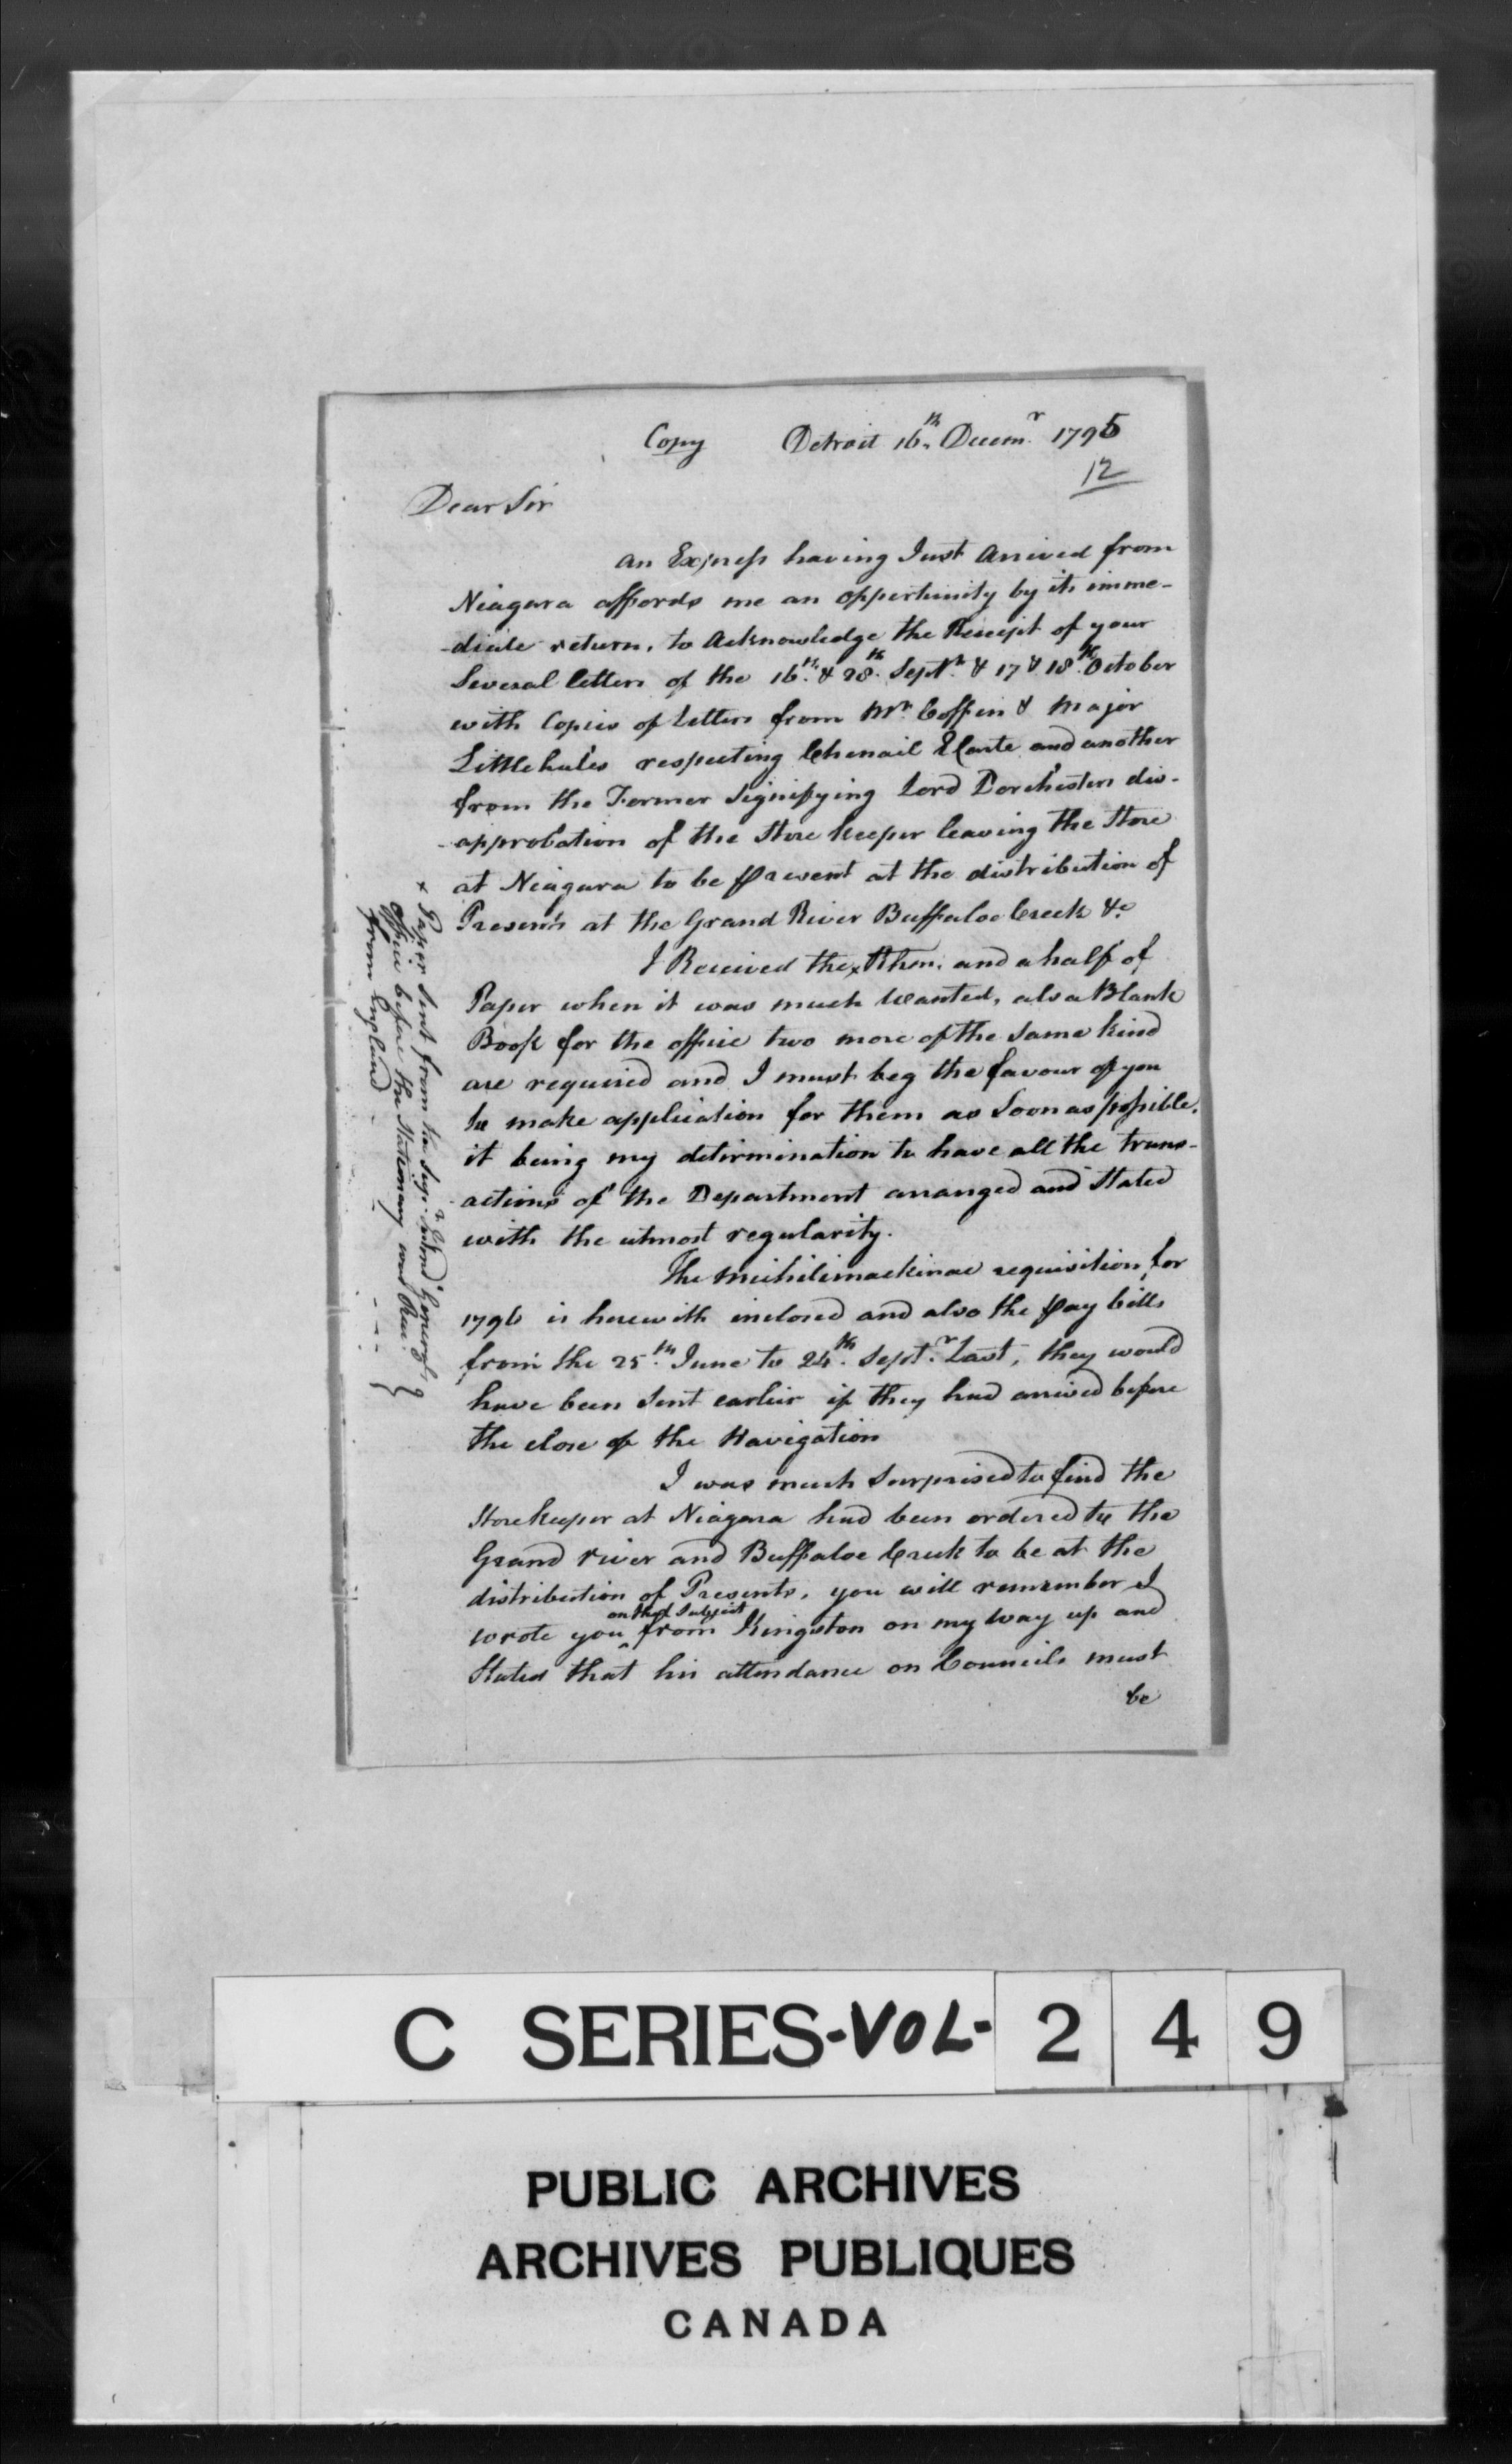 Copy Detroit 16th. Decemr. 1795
12
Dear Sir
An Express having Just Arrived from
Niagara affords me an oppertunity by its imme-
-diate return, to Acknowledge the Receipt of your
Several letters of the 16th. & 28th. Septr. & 17 & 18th. October
with Copies of Letters from Mr. Coffin & Major
Littlehales respecting Chenail Ecarte and another
from the Former Signifying Lord Dorchesters dis-
-approbation of the Store keeper leaving the Store
at Niagara to be Present at the distribution of
Presents at the Grand River Buffaloe Creek &c
I Received the x Rhm. and a half of
Paper when it was much Wanted, also a Blank
Book for the office two more of the Same kind
are required and I must beg the favour of you
to make application for them as Soon as possible,
it being my determination to have all the trans-
-actions of the Department arranged and Stated
with the utmost regularity.
The Michilimackinac requisition for
1796 is herewith inclosed and also the Pay bills
from the 25th. June to 24th. Septr. Last, they would
have been Sent earlier if they had arrived before
the close of the Navigation
I was much Surprised to find the
Storekeeper at Niagara had been ordered to the
Grand river and Buffaloe Creek to be at the
distribution of Presents, you will remember I
on that Subject
wrote you ^ from Kingston on my way up and
Stated that his attendance on Councils must
be
x Paper Sent from the Supr. Intend. General's
office before the Stationary was Rec.
from England
C SERIES-VOL- 2 4 9
PUBLIC ARCHIVES
ARCHIVES PUBLIQUES
CANADA